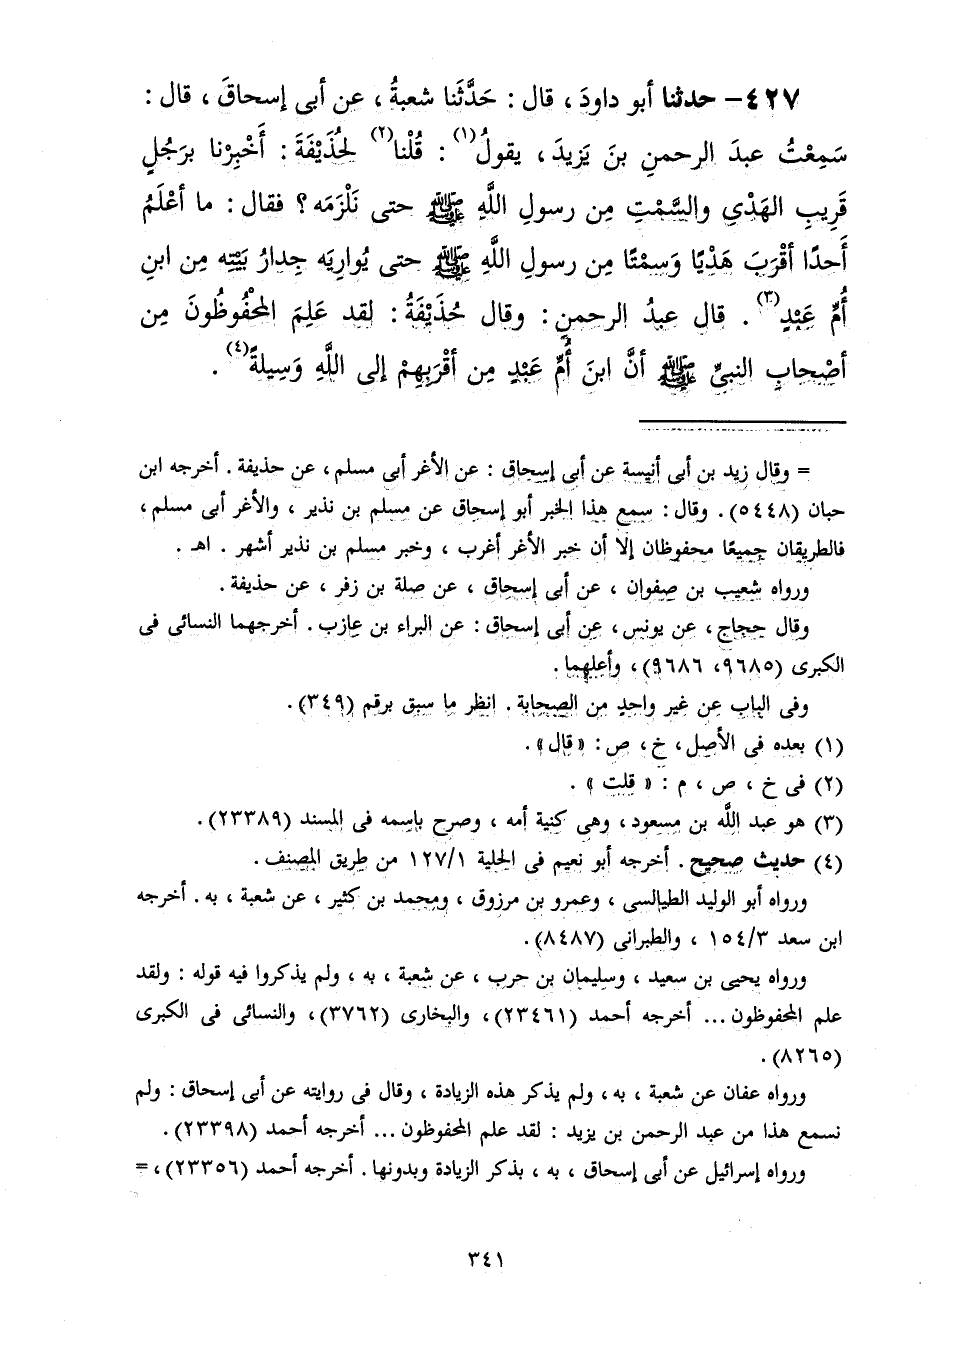 ٤٢٧- حدثنا أبو داودَ ، قال : حَدَّثَنا شعبةُ ، عن أبى إسحاقَ ، قال :
سَمِعْتُ عبدَ الرحمنِ بنَ يَزِيدَ ، يقولُ(١) : قُلْنا(٢) لحُذَيْفَةَ : أَخْبِرْنا برَجُلٍ
قَرِيبِ الهَدْيِ والسَّمْتِ مِن رسولِ اللَّهِ ﷺ حتى نَلْزَمَه ؟ فقال : ما أَعْلَمُ
أَحدًا أَقْرَبَ هَدْيًا وَسَمْتًا مِن رسولِ اللَّهِ ﷺ حتى يُوارِيَه جِدارُ بَيْتِه مِن ابنِ
أُمِّ عَبْدٍ(٣) . قال عبدُ الرحمنِ : وقال حُذَيْفَةُ : لقد عَلِمَ المَحْفُوظُونَ مِن
أَصْحابِ النبيِّ ﷺ أنَّ ابنَ أُمِّ عَبْدٍ مِن أَقْرَبِهِمْ إلى اللَّهِ وَسِيلةً(٤) .
= وقال زيد بن أبى أنيسة عن أبى إسحاق : عن الأغر أبى مسلم ، عن حذيفة . أخرجه ابن
حبان (٥٤٤٨) . وقال : سمع هذا الخبر أبو إسحاق عن مسلم بن نذير ، والأغر أبى مسلم ،
فالطريقان جميعًا محفوظان إلا أن خبر الأغر أغرب ، وخبر مسلم بن نذير أشهر . اهـ .
ورواه شعيب بن صفوان ، عن أبى إسحاق ، عن صلة بن زفر ، عن حذيفة .
وقال حجاج ، عن يونس ، عن أبى إسحاق : عن البراء بن عازب . أخرجهما النسائى فى
الكبرى (٩٦٨٥، ٩٦٨٦) ، وأعلهما .
وفى الباب عن غير واحدٍ من الصحابة . انظر ما سبق برقم (٣٤٩) .
(١) بعده فى الأصل ، خ ، ص : « قال » .
(٢) فى خ ، ص ، م : « قلت » .
(٣) هو عبد اللَّه بن مسعود ، وهى كنية أمه ، وصرح باسمه فى المسند (٢٣٣٨٩) .
(٤) حديث صحيح . أخرجه أبو نعيم فى الحلية ١٢٧/١ من طريق المصنف .
ورواه أبو الوليد الطيالسى ، وعمرو بن مرزوق ، ومحمد بن كثير ، عن شعبة ، به . أخرجه
ابن سعد ١٥٤/٣ ، والطبرانى (٨٤٨٧) .
ورواه يحيى بن سعيد ، وسليمان بن حرب ، عن شعبة ، به ، ولم يذكروا فيه قوله : ولقد
علم المحفوظون ... أخرجه أحمد (٢٣٤٦١) ، والبخارى (٣٧٦٢) ، والنسائى فى الكبرى
(٨٢٦٥) .
ورواه عفان عن شعبة ، به ، ولم يذكر هذه الزيادة ، وقال فى روايته عن أبى إسحاق : ولم
نسمع هذا من عبد الرحمن بن يزيد : لقد علم المحفوظون ... أخرجه أحمد (٢٣٣٩٨) .
ورواه إسرائيل عن أبى إسحاق ، به ، بذكر الزيادة وبدونها . أخرجه أحمد (٢٣٣٥٦) ، =
٣٤١